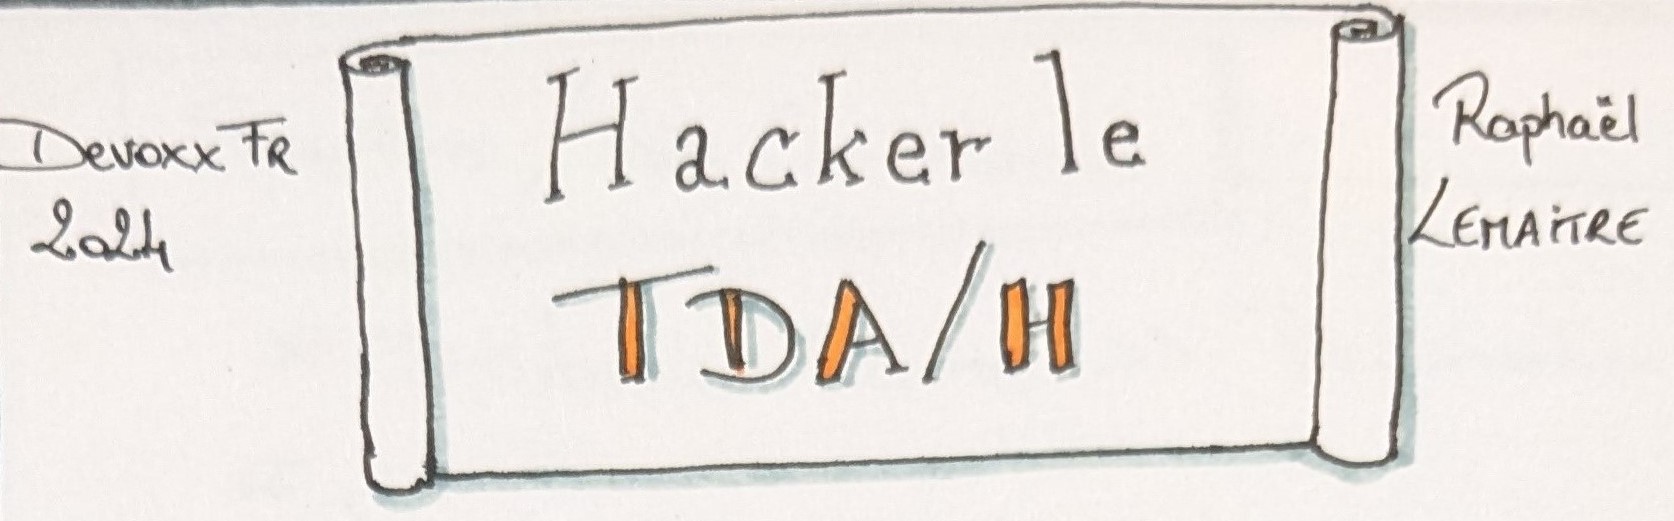 Devoxx FR
2024
Hacker le
TDA/H
Raphaël
LEMAiTRE